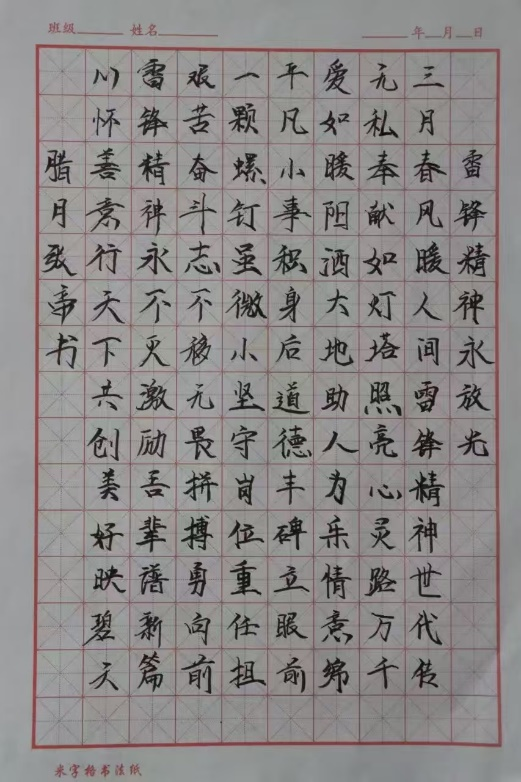 班级 姓名 年 月 日
雷锋精神永放光
三月春风暖人间雷锋精神世代传
无私奉献如灯塔照亮心灵路万千
爱如暖阳洒大地助人为乐情意绵
平凡小事积身后道德丰碑立眼前
一颗螺钉虽微小坚守岗位重任担
艰苦奋斗志不移无畏拼搏勇向前
雷锋精神永不灭激励吾辈谱新篇
心怀善意行天下共创美好映碧天
腊月张书
米字格书法纸